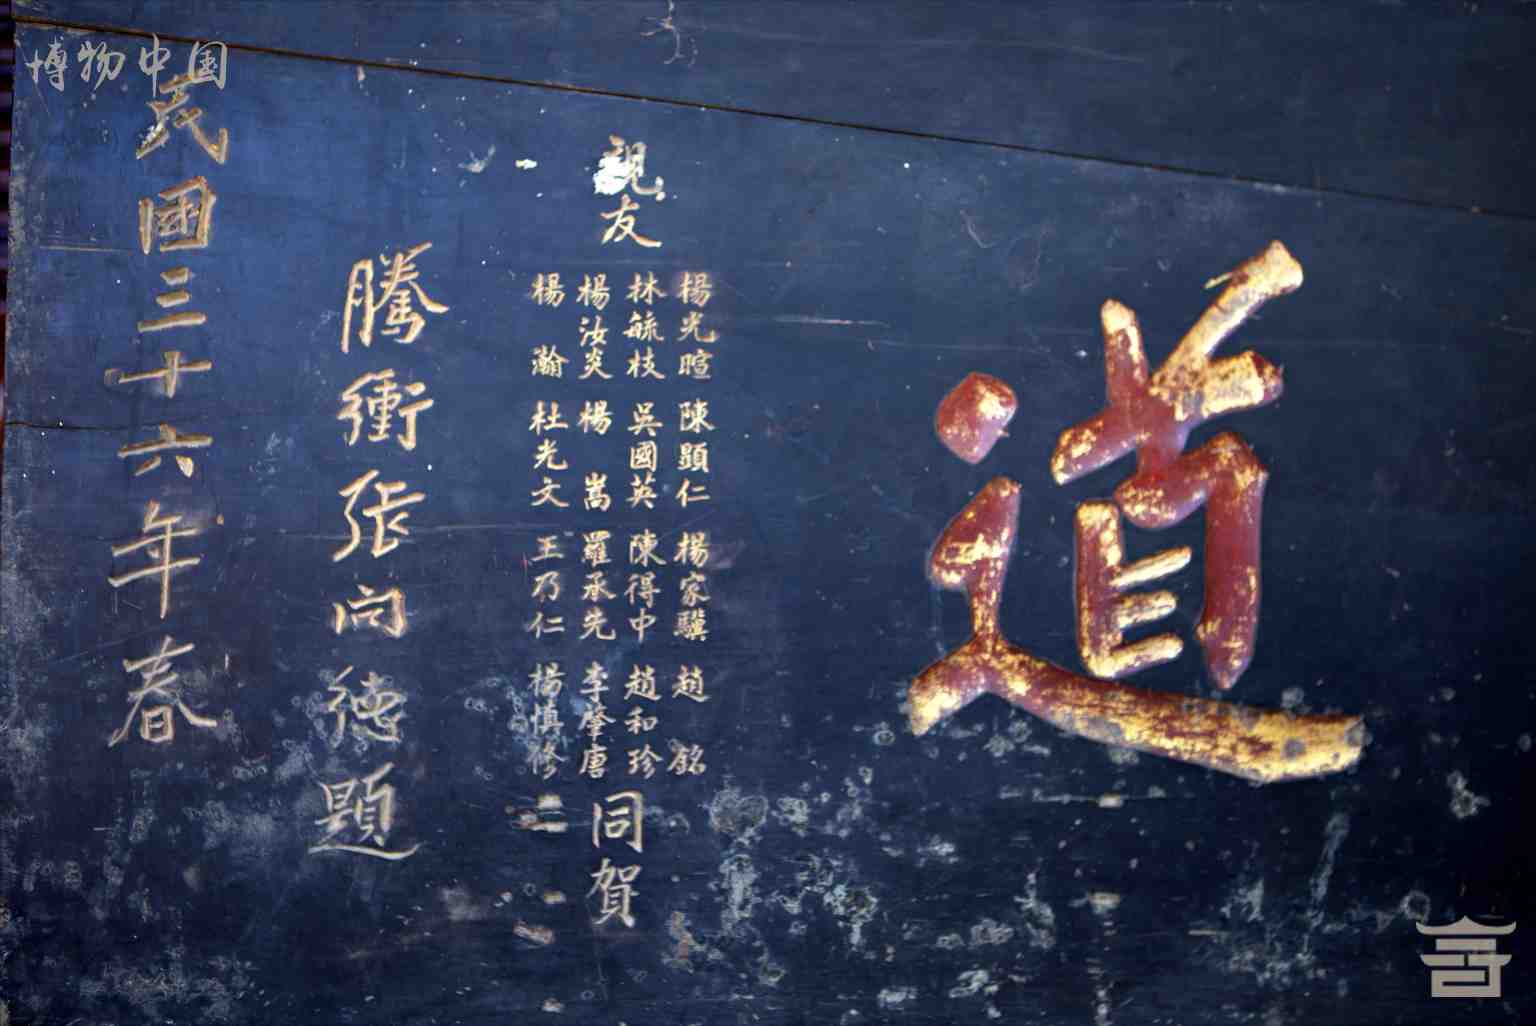 道
親友
楊光暄 陳顯仁 楊家驥 趙銘
林毓枝 吳國英 陳得中 趙和珍
楊汝炎 楊嵩 羅承先 李肇唐
楊瀚 杜光文 王乃仁 楊慎修
同賀
騰衝張問德題
民國三十六年春
博物中国